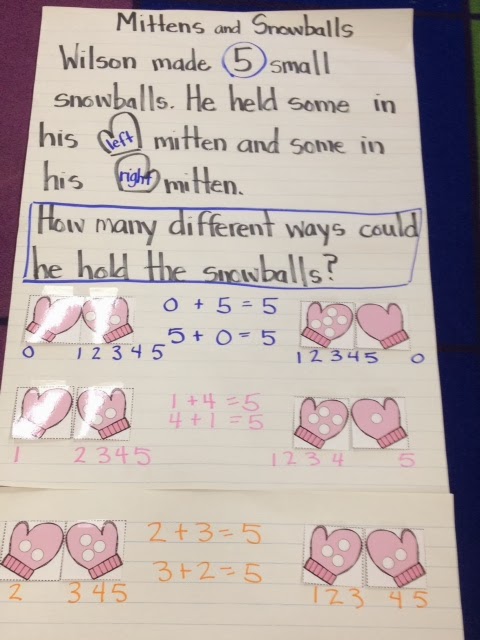 Mittens and Snowballs
Wilson made 5 small
snowballs. He held some in
his left mitten and some in
his right mitten.
How many different ways could
he hold the snowballs?
0 + 5 = 5
5 + 0 = 5
0 1 2 3 4 5
1 2 3 4 5 0
1 + 4 = 5
4 + 1 = 5
1 2 3 4 5
1 2 3 4 5
2 + 3 = 5
3 + 2 = 5
2 3 4 5
1 2 3 4 5